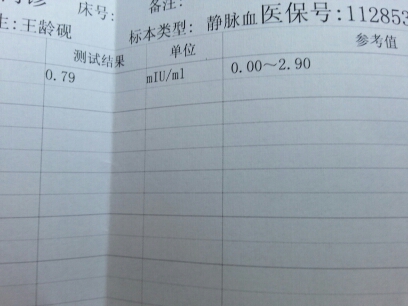 诊 床号: 备注:
生:王龄砚 标本类型: 静脉血 医保号:112853
测试结果 单位 参考值
0.79 mIU/ml 0.00～2.90